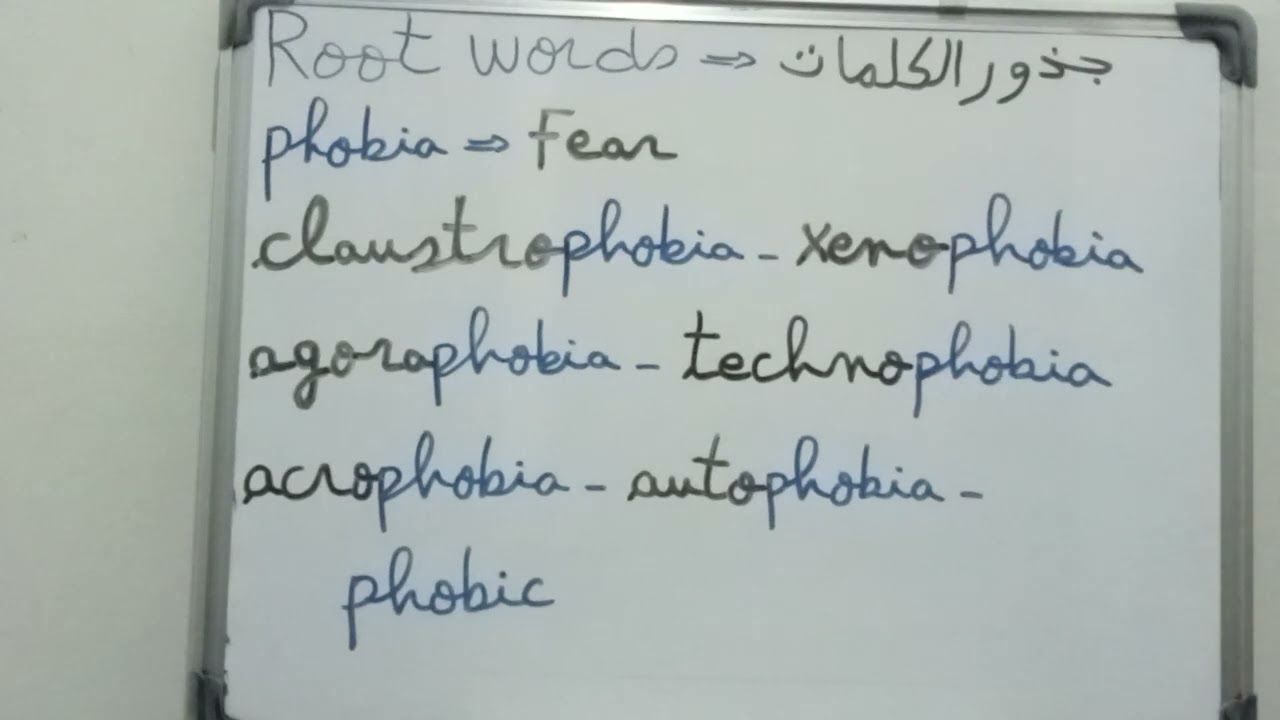 Root words => جذور الكلمات
phobia => Fear
claustrophobia - xenophobia
agoraphobia - technophobia
acrophobia - autophobia -
phobic